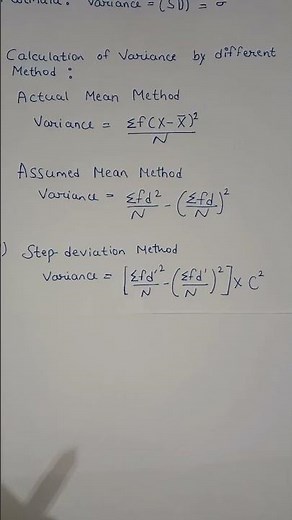 Variance = (SD) = σ
Calculation of Variance by different
Method :
Actual Mean Method
Variance = Σf(X-X̄)² / N
Assumed Mean Method
Variance = Σfd²/N - (Σfd/N)²
) Step deviation Method
Variance = [Σfd'²/N - (Σfd'/N)²] x C²